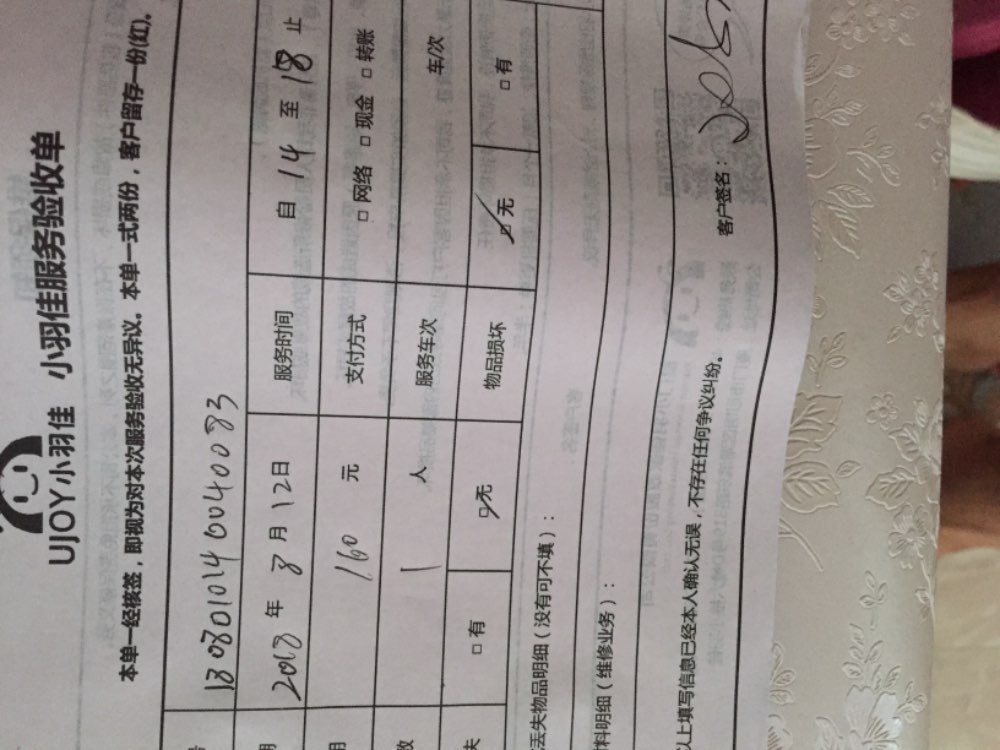 UJOY小羽佳 小羽佳服务验收单
本单一经核签，即视为对本次服务验收无异议。本单一式两份，客户留存一份(红)。
号 18080101440040083
期 2018年8月12日 服务时间 自14至18止
用 160元 支付方式 □网络 □现金 □转账
数 1人 服务车次 车/次
失 □有 ☑无 物品损坏 ☑无 □有
丢失物品明细（没有可不填）：
料明细（维修业务）：
以上填写信息已经本人确认无误，不存在任何争议纠纷。 客户签名：